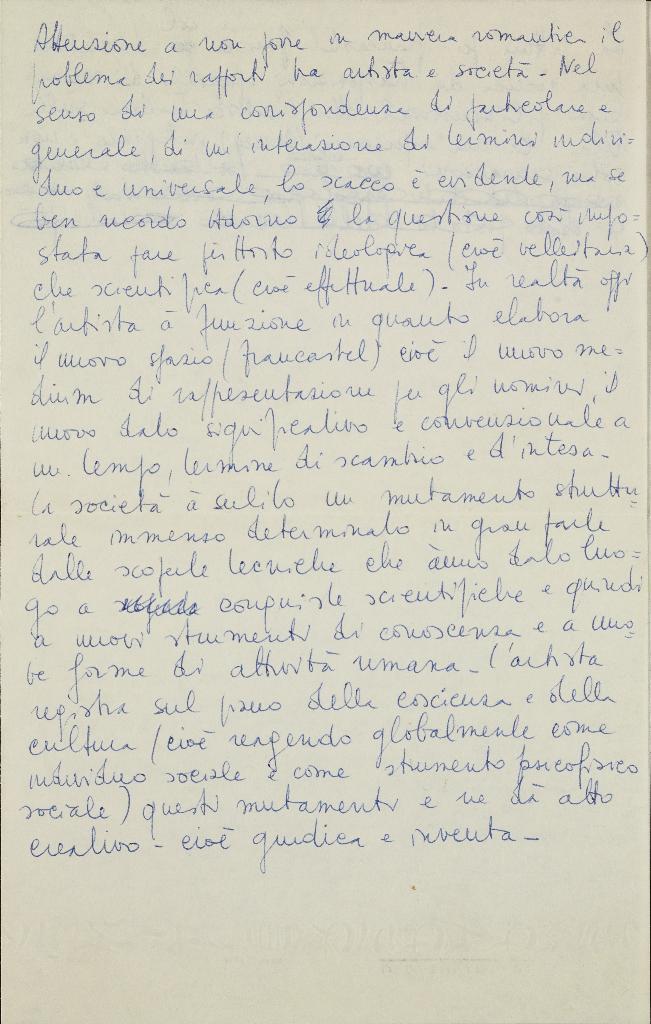 Attenzione a non porre in maniera romantica il
problema dei rapporti tra artista e società - Nel
senso di una corrispondenza di particolare e
generale, di un'interazione di termini indivi=
duo e universale, lo scacco è evidente, ma se
ben ricordo Adorno la questione così impo=
stata pare piuttosto ideologica (cioè velleitaria)
che scientifica (cioè effettuale) - In realtà oggi
l'artista à funzione in quanto elabora
il nuovo spazio (francastel) cioè il nuovo me=
dium di rappresentazione per gli uomini, il
nuovo dato significativo e convenzionale a
un tempo, termine di scambio e d'intesa -
la società à subito un mutamento struttu=
rale immenso determinato in gran parte
dalle scoperte tecniche che ànno dato luo=
go a conquiste scientifiche e quindi
a nuovi strumenti di conoscenza e a nuo=
ve forme di attività umana - l'artista
registra sul piano della coscienza e della
cultura (cioè reagendo globalmente come
individuo sociale e come strumento psicofisico
sociale) questi mutamenti e ne dà atto
creativo - cioè giudica e inventa -